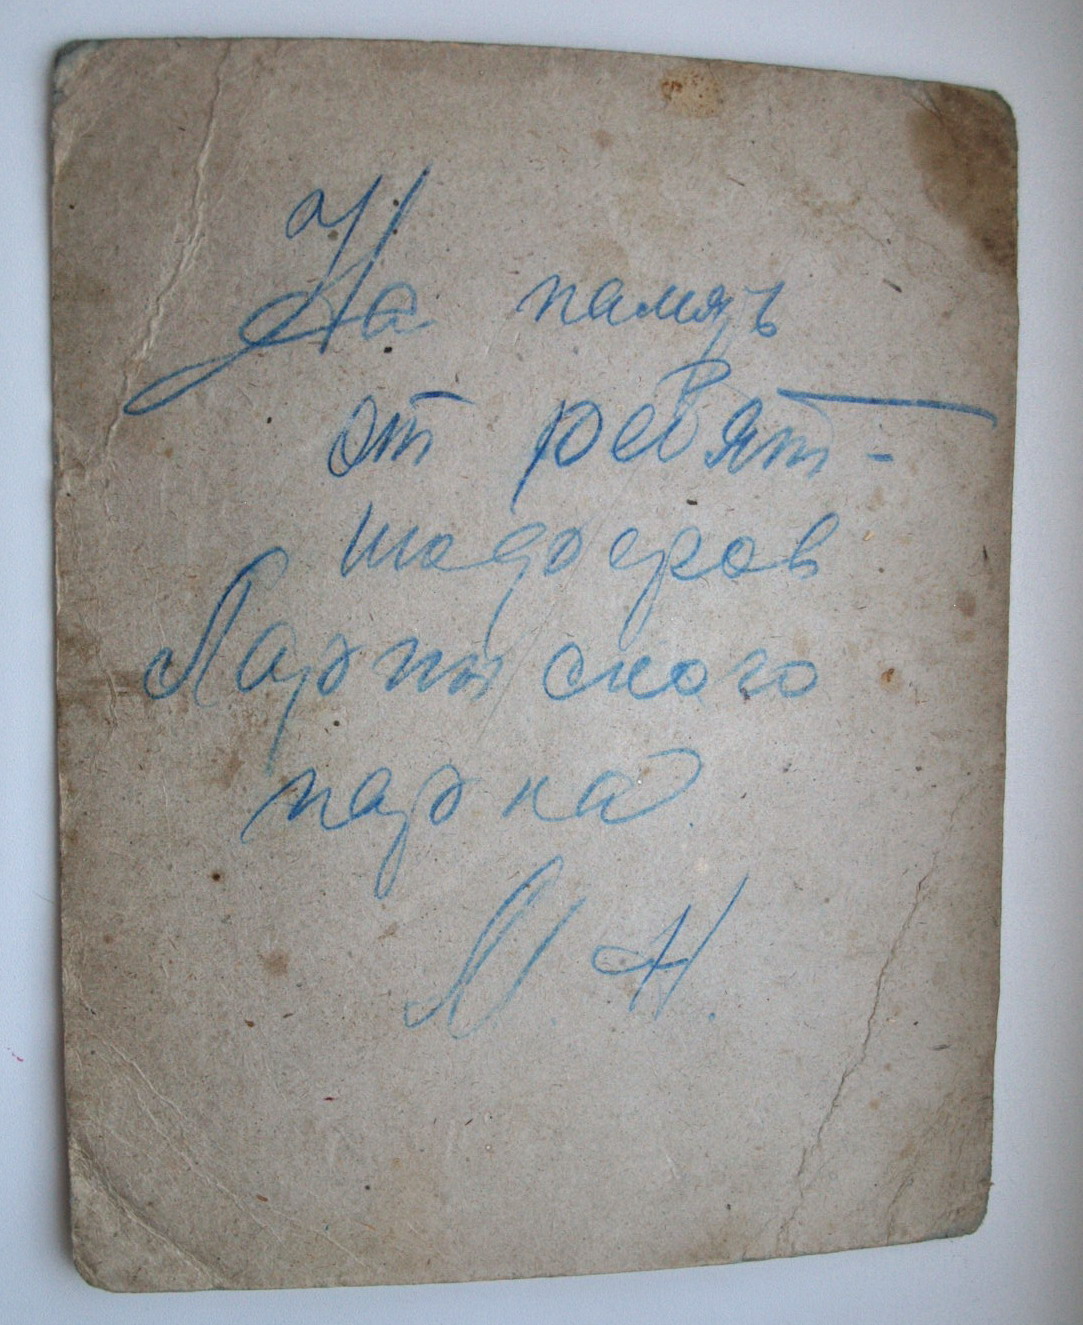 На память
от ребят-
шоферов
Ларинского
парка.
Л. Н.